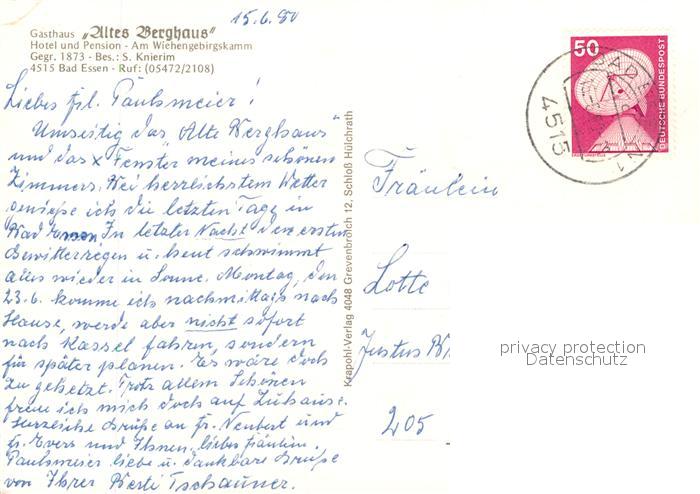 15.6.80
Gasthaus „Altes Berghaus"
Hotel und Pension - Am Wiehengebirgskamm
Gegr. 1873 - Bes.: S. Knierim
4515 Bad Essen - Ruf: (05472/2108)
Liebes Frl. Paulsmeier!
Umseitig das „Alte Berghaus"
und das x Fenster meines schönen
Zimmers. Bei herrlichstem Wetter
genieße ich die letzten Tage in
Bad Essen. In letzter Nacht den ersten
Gewitterregen u. heut schwimmt
alles wieder in Sonne. Montag, den
23.6. komme ich nachmittags nach
Hause, werde aber nicht sofort
nach Kassel fahren, sondern
für später planen. Es wäre doch
zu gehetzt. Trotz allem Schönen
freue ich mich doch auf Zuhause.
Herzliche Grüße an Fr. Neubert und
Fr. Evers und Ihnen, liebes Fräulein
Paulsmeier liebe u. dankbare Grüße
von Ihrer Berti Tschauner.
Krapohl-Verlag 4048 Grevenbroich 12, Schloß Hülchrath
50
DEUTSCHE BUNDESPOST
4515
1
Fräulein
Lotte
Justus
205
privacy protection
Datenschutz